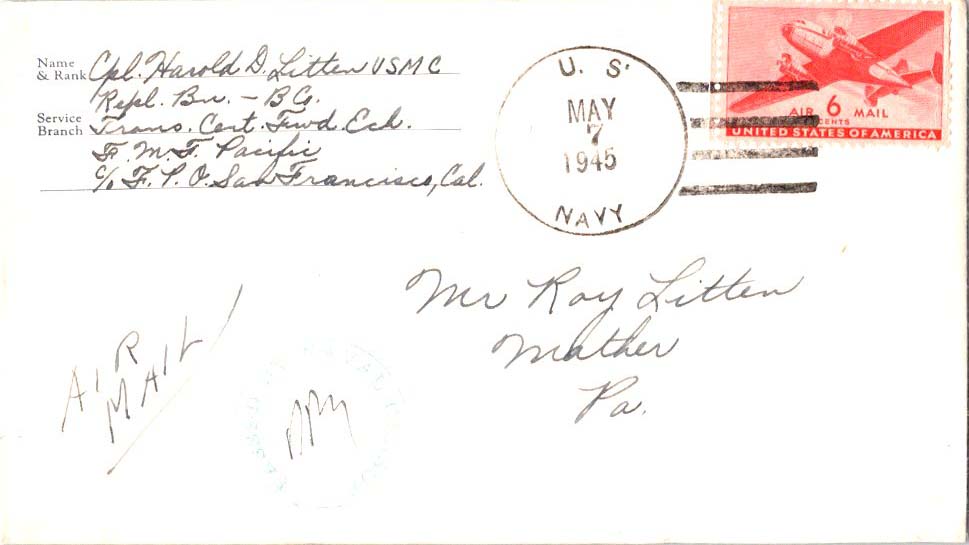 Name & Rank Cpl. Harold D. Litten USMC
Repl. Bn. - B Co.
Service Branch Trans. Cent. Fwd. Ech.
F. M. F. Pacific
c/o F. P. O. San Francisco, Cal.
U. S.
MAY
7
1945
NAVY
AIR 6 MAIL
CENTS
UNITED STATES OF AMERICA
Mr Roy Litten
Mather
Pa.
AIR
MAIL
PASSED BY NAVAL CENSOR